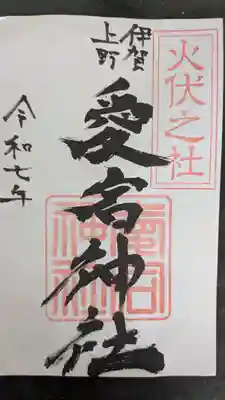 火伏之社
伊賀
上野
愛宕神社
令和七年